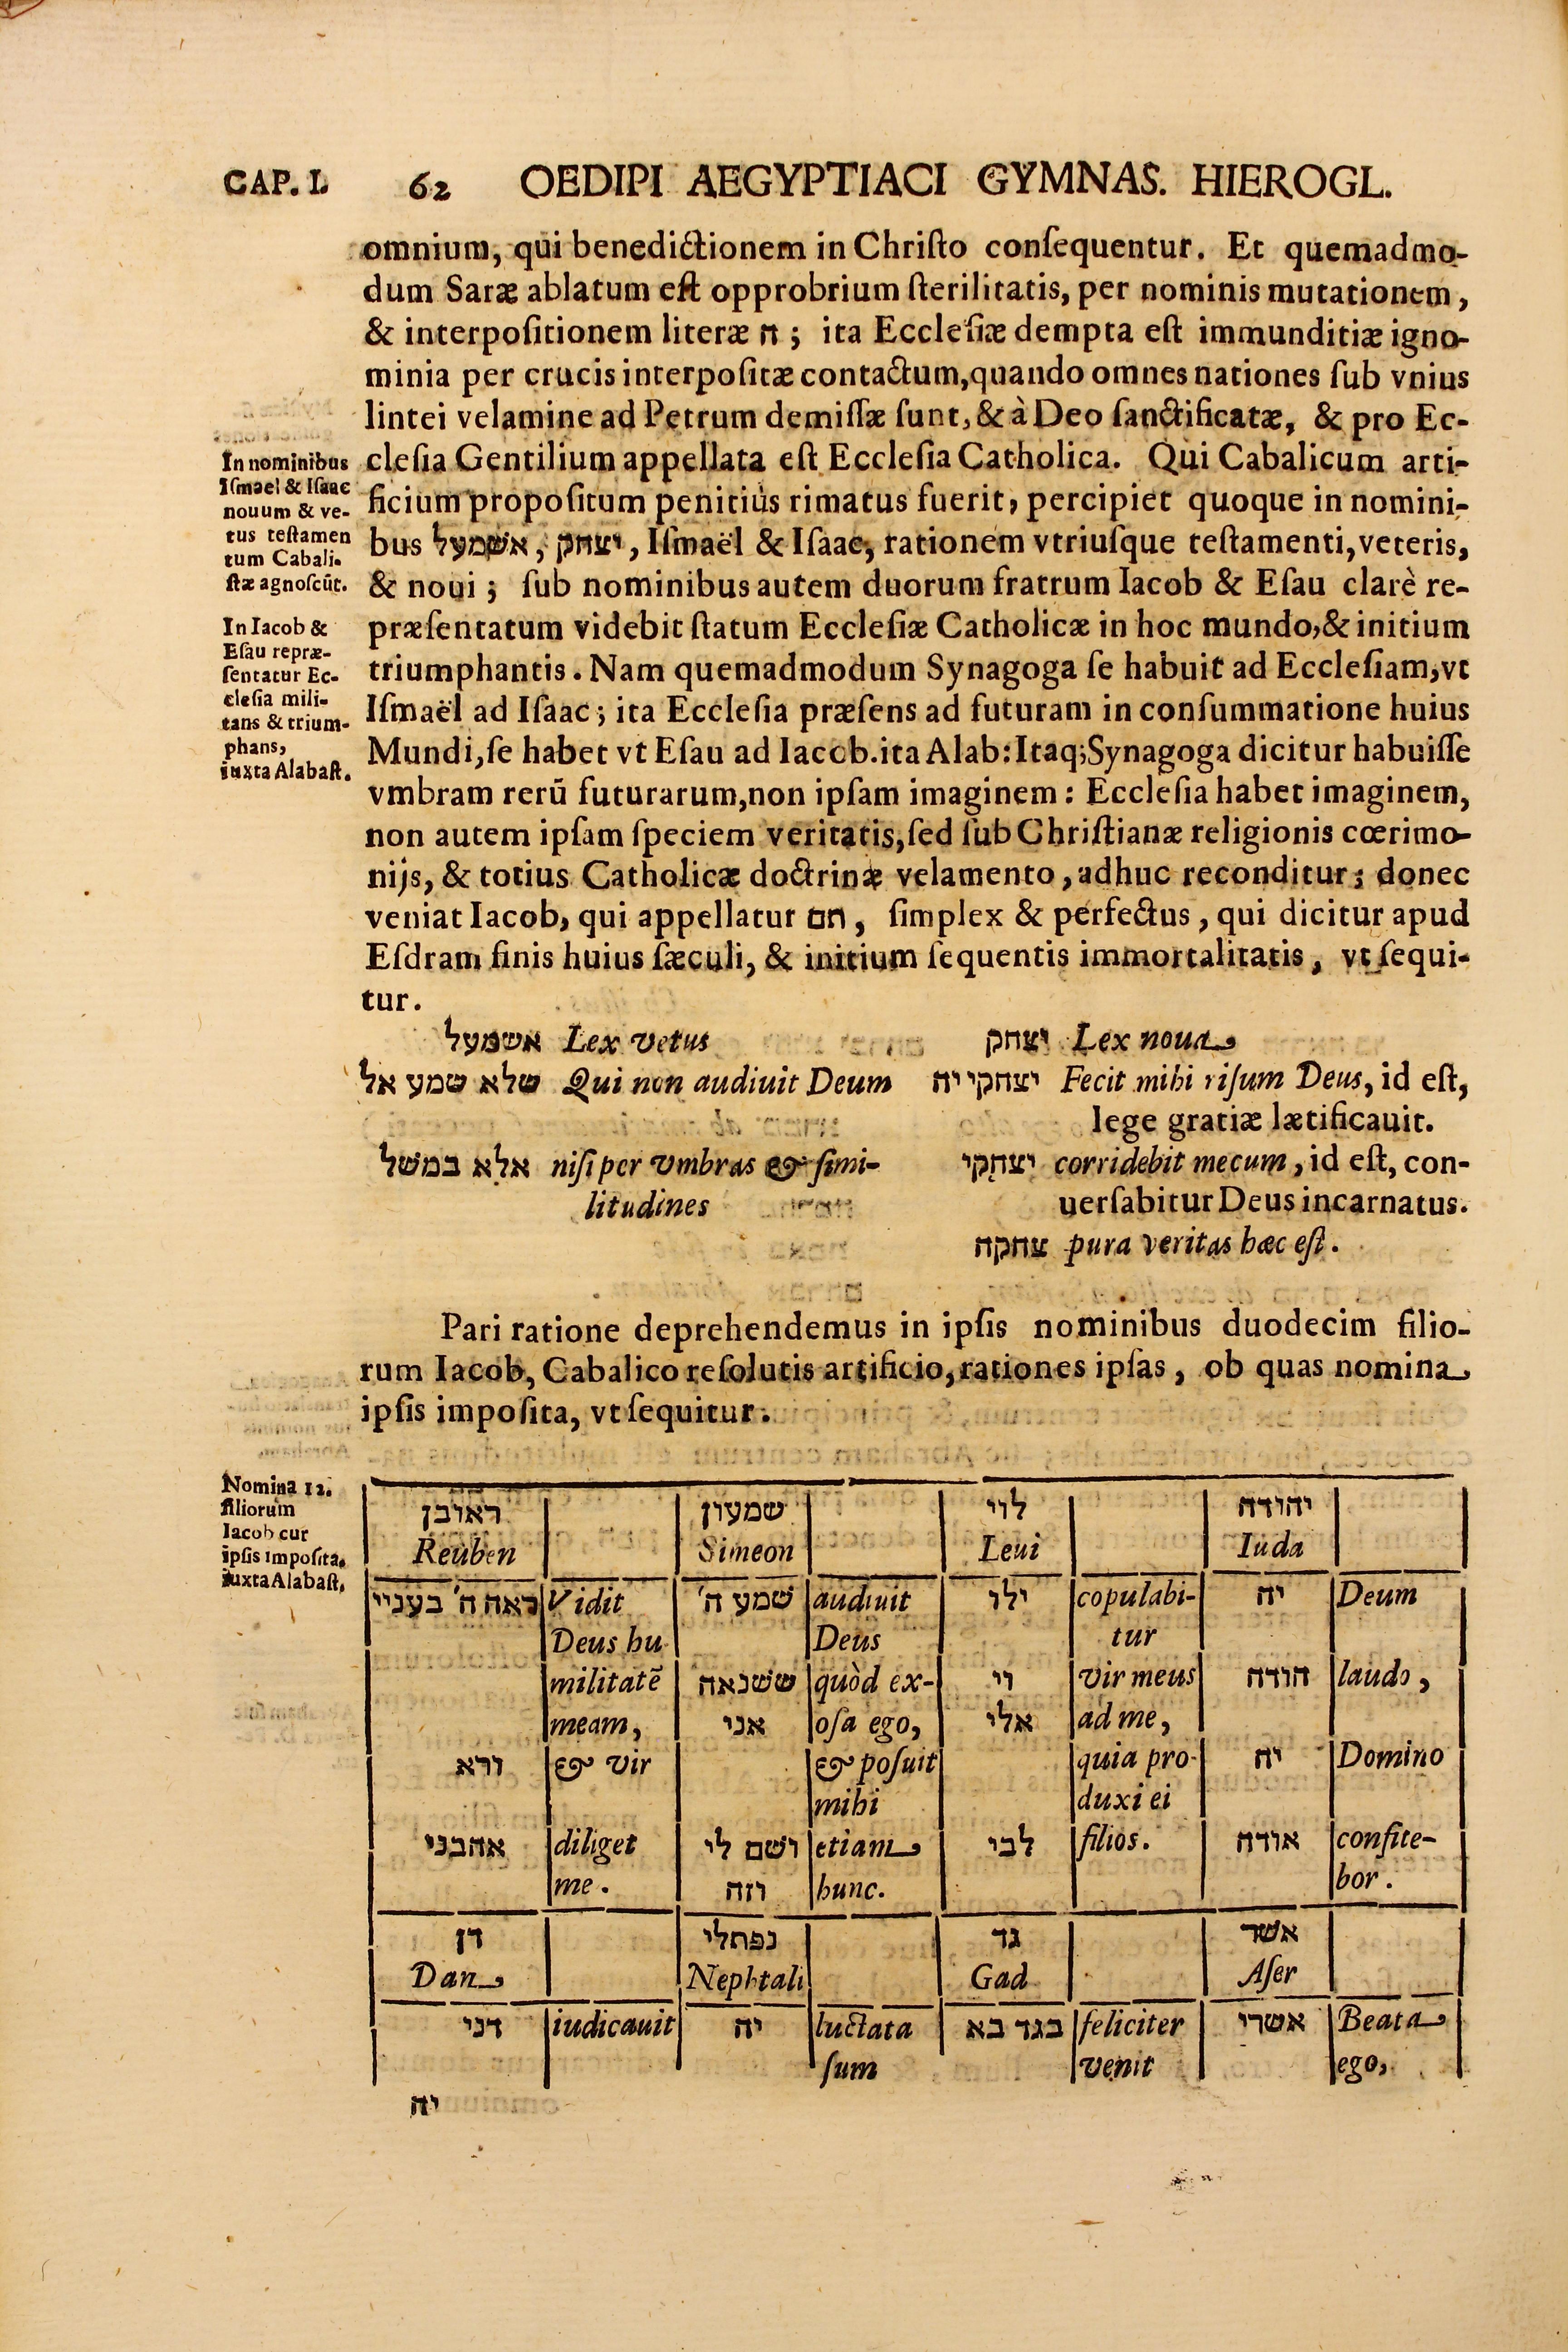 CAP. I. 62 OEDIPI AEGYPTIACI GYMNAS. HIEROGL.
omnium, qui benedictionem in Chriſto conſequentur. Et quemadmo-
dum Saræ ablatum eſt opprobrium ſterilitatis, per nominis mutationem,
& interpoſitionem literæ ה ; ita Eccleſiæ dempta eſt immunditiæ igno-
minia per crucis interpoſitæ contactum, quando omnes nationes ſub vnius
lintei velamine ad Petrum demiſſæ ſunt, & à Deo ſanctificatæ, & pro Ec-
cleſia Gentilium appellata eſt Eccleſia Catholica. Qui Cabalicum arti-
ficium propoſitum penitiùs rimatus fuerit, percipiet quoque in nomini-
bus אשמעל, יצחק, Iſmaël & Iſaac, rationem vtriuſque teſtamenti, veteris,
& noui ; ſub nominibus autem duorum fratrum Iacob & Eſau clarè re-
præſentatum videbit ſtatum Eccleſiæ Catholicæ in hoc mundo, & initium
triumphantis. Nam quemadmodum Synagoga ſe habuit ad Eccleſiam, vt
Iſmaël ad Iſaac ; ita Eccleſia præſens ad futuram in conſummatione huius
Mundi, ſe habet vt Eſau ad Iaccb. ita Alab: Itaq; Synagoga dicitur habuiſſe
vmbram rerū futurarum, non ipſam imaginem : Eccleſia habet imaginem,
non autem ipſam ſpeciem veritatis, ſed ſub Chriſtianæ religionis cœrimo-
nijs, & totius Catholicæ doctrinæ velamento, adhuc reconditur ; donec
veniat Iacob, qui appellatur תם, ſimplex & perfectus, qui dicitur apud
Eſdram finis huius ſæculi, & initium ſequentis immortalitatis, vt ſequi-
tur.
In nominibus
Iſmael & Iſaac
nouum & ve-
tus teſtamen
tum Cabali-
ſtæ agnoſcūt.
In Iacob &
Eſau repræ-
ſentatur Ec-
cleſia mili-
tans & trium-
phans,
iuxta Alabaſt.
אשמעל Lex vetus יצחק Lex noua
שלא שמע אל Qui non audiuit Deum יצחקי יה Fecit mihi riſum Deus, id eſt,
lege gratiæ lætificauit.
אלא במשל niſi per vmbras & ſimi- יצחקי corridebit mecum, id eſt, con-
litudines uerſabitur Deus incarnatus.
צחקה pura veritas hæc eſt.
Pari ratione deprehendemus in ipſis nominibus duodecim filio-
rum Iacob, Cabalico reſolutis artificio, rationes ipſas, ob quas nomina
ipſis impoſita, vt ſequitur.
Nomina 12.
filiorum
Iacob cur
ipſis impoſita.
iuxta Alabaſt,
ראובן שמעון לוי יהודה
Reuben Simeon Leui Iuda
ראה ה' בעניי Vidit שמע ה' audiuit ילו copulabi- יה Deum
Deus hu Deus tur
militatē ששנאה quòd ex- וי vir meus הודה laudo,
meam, אני oſa ego, אלי ad me,
ורא & vir & poſuit quia pro- יה Domino
mihi duxi ei
אהבני diliget ושם לי etiam לבי filios. אודה confite-
me. וזה hunc. bor.
דן נפתלי גד אשר
Dan Nephtali Gad Aſer
דני iudicauit יה luctata בגד בא feliciter אשרי Beata
ſum venit ego,
יה